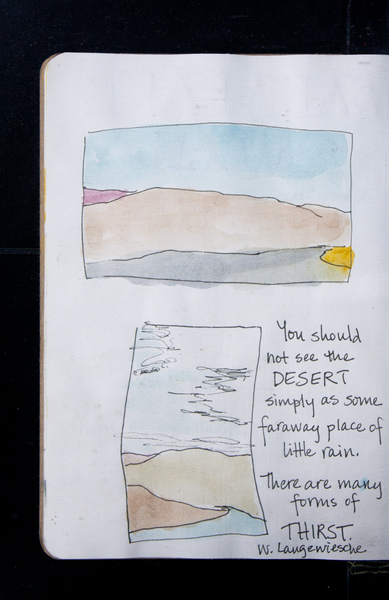 You should
not see the
DESERT
simply as some
faraway place of
little rain.
There are many
forms of
THIRST.
W. Langewiesche